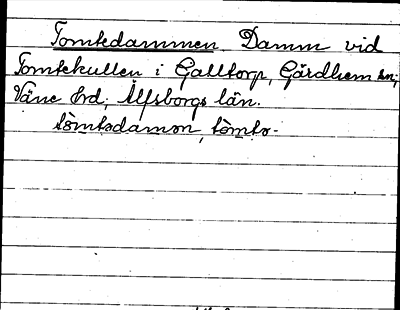 Tomtedammen. Damm vid
Tomtekullen i Galltorp, Gärdhem sn;
Väne hd; Älfsborgs län.
tòmtədamən, tòmtə-